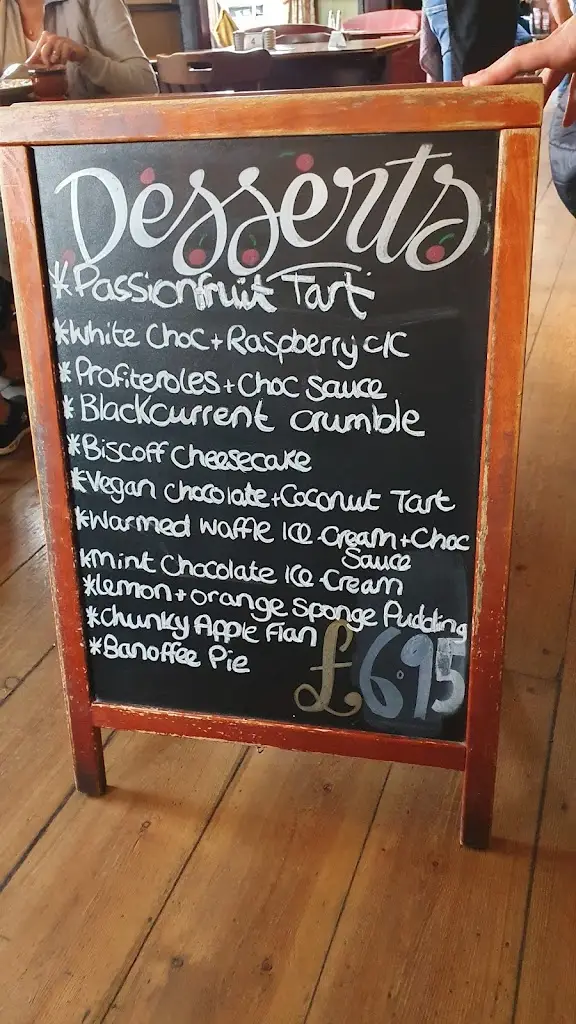 Desserts
*Passionfruit Tart
*White Choc + Raspberry c/c
*Profiteroles + Choc Sauce
*Blackcurrent crumble
*Biscoff Cheesecake
*Vegan chocolate + Coconut Tart
*Warmed Waffle Ice Cream + Choc
Sauce
*mint Chocolate Ice Cream
*lemon + orange sponge Pudding
*Chunky Apple Flan
*Banoffee Pie
£6.95